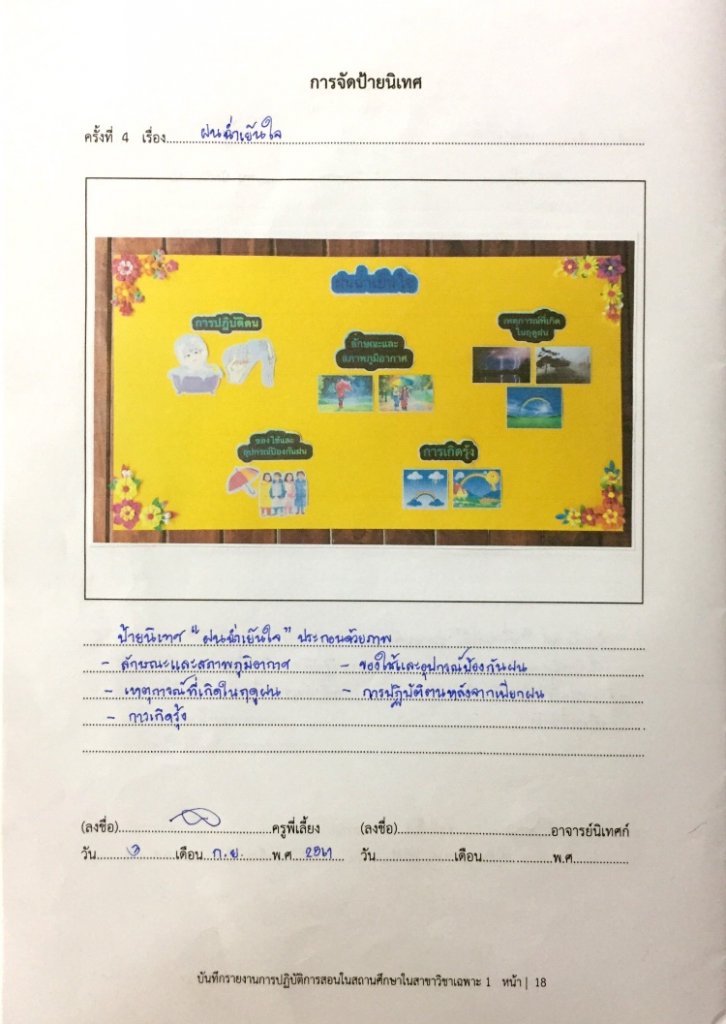 การจัดป้ายนิเทศ
ครั้งที่ 4 เรื่อง ฝนฉ่ำเย็นใจ
ฝนฉ่ำเย็นใจ
การปฏิบัติตน
ลักษณะและ
สภาพภูมิอากาศ
เหตุการณ์ที่เกิด
ในฤดูฝน
ของใช้และ
อุปกรณ์ป้องกันฝน
การเกิดรุ้ง
ป้ายนิเทศ "ฝนฉ่ำเย็นใจ" ประกอบด้วยภาพ
- ลักษณะและสภาพภูมิอากาศ - ของใช้และอุปกรณ์ป้องกันฝน
- เหตุการณ์ที่เกิดในฤดูฝน - การปฏิบัติตนหลังจากเปียกฝน
- การเกิดรุ้ง
(ลงชื่อ) ครูพี่เลี้ยง (ลงชื่อ) อาจารย์นิเทศก์
วัน ๓ เดือน ก.ย. พ.ศ. ๒๕๖๑ วัน เดือน พ.ศ
บันทึกรายงานการปฏิบัติการสอนในสถานศึกษาในสาขาวิชาเฉพาะ 1 หน้า | 18